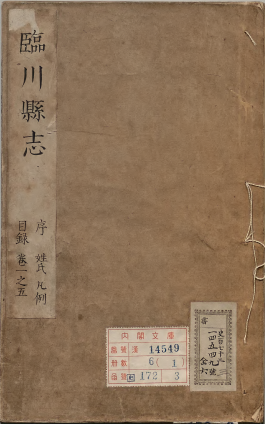 臨川縣志
序 姓氏 凡例
目錄 卷一之五
内閣文庫
番號 漢 14549
冊數 6(1)
函號 172 3
一四五四九號
全六